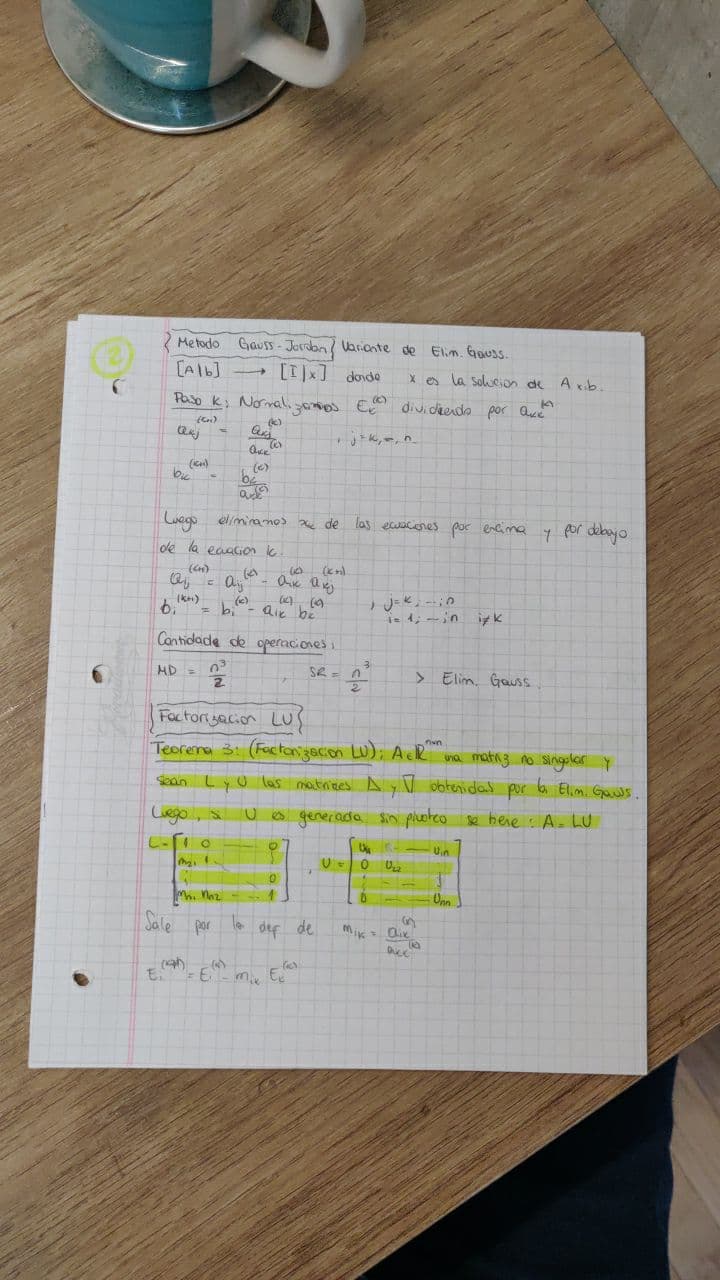 2
Metodo Gauss-Jordan Variante de Elim. Gauss.
[A|b] → [I|x] donde x es la solucion de Ax=b.
Paso k: Normalizamos E_k^(k) dividiendo por a_kk^(k)
a_kj^(k+1) = a_kj^(k) / a_kk^(k) , j=k,-,n
b_k^(k+1) = b_k^(k) / a_kk^(k)
Luego eliminamos x_k de las ecuaciones por encima y por debajo
de la ecuacion k.
a_ij^(k+1) = a_ij^(k) - a_ik^(k) a_kj^(k+1)
b_i^(k+1) = b_i^(k) - a_ik^(k) b_k^(k) , j=k; --; n
i=1; --; n i≠k
Cantidade de operaciones:
MD = n^3/2 , SR = n^3/2 > Elim. Gauss.
Factorizacion LU
Teorema 3: (Factorizacion LU); A∈R^nxn una matriz no singular y
sean L y U las matrices ◺ y ◹ obtenidas por la Elim. Gauss.
Luego, si U es generada sin pivoteo se tiene: A=LU
L= [1 0 --- 0 , U = [U11 --- U1n
m21 1 0 U22
0
mn1 mn2 -- 1] 0 --- Unn]
Sale por la def de m_ik = a_ik^(k) / a_kk^(k)
E_i^(k+1) = E_i^(k) - m_ik E_k^(k)